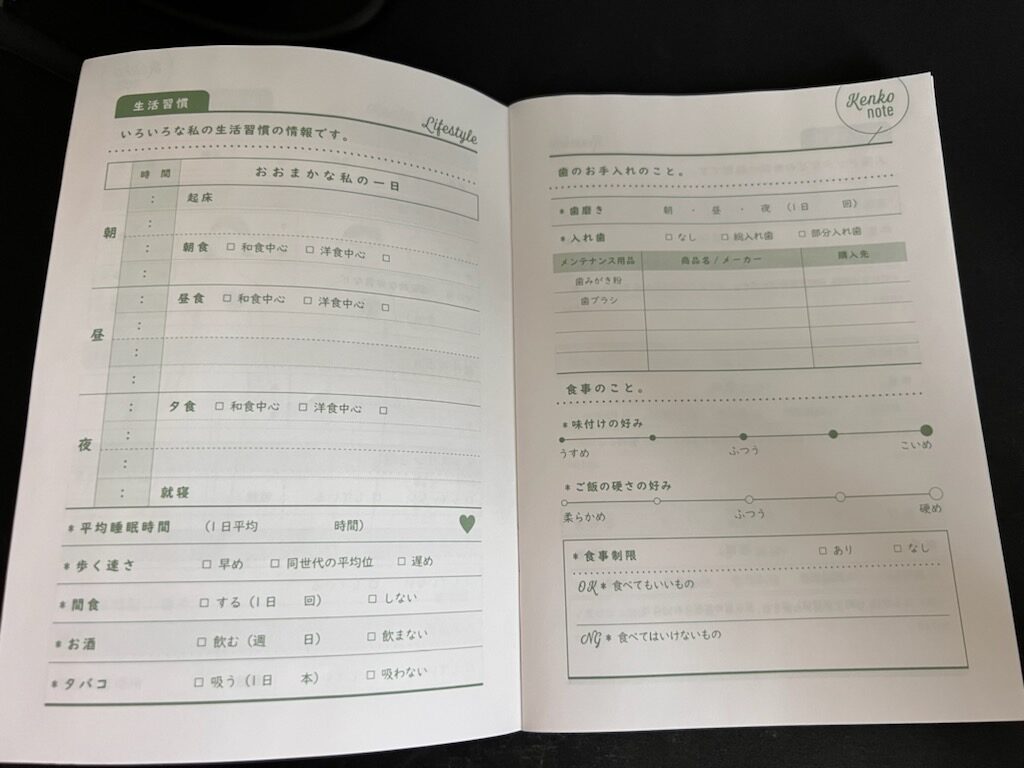 生活習慣
Lifestyle
いろいろな私の生活習慣の情報です。
時間 おおまかな私の一日
朝
: 起床
:
: 朝食 □ 和食中心 □ 洋食中心 □
:
昼
: 昼食 □ 和食中心 □ 洋食中心 □
:
:
:
夜
: 夕食 □ 和食中心 □ 洋食中心 □
:
:
: 就寝
* 平均睡眠時間 (1日平均 時間)
* 歩く速さ □ 早め □ 同世代の平均位 □ 遅め
* 間食 □ する (1日 回) □ しない
* お酒 □ 飲む (週 日) □ 飲まない
* タバコ □ 吸う (1日 本) □ 吸わない
Kenko
note
歯のお手入れのこと。
* 歯磨き 朝 ・ 昼 ・ 夜 (1日 回)
* 入れ歯 □ なし □ 総入れ歯 □ 部分入れ歯
メンテナンス用品 商品名 / メーカー 購入先
歯みがき粉
歯ブラシ
食事のこと。
* 味付けの好み
うすめ ふつう こいめ
* ご飯の硬さの好み
柔らかめ ふつう 硬め
* 食事制限 □ あり □ なし
OK * 食べてもいいもの
NG * 食べてはいけないもの